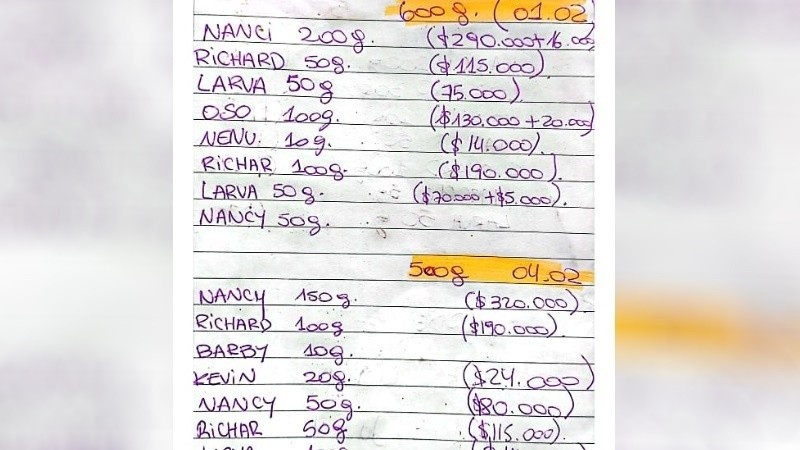 600g. (01.02)
NANCI 200g. ($290.000+16.000
RICHARD 50g. ($115.000)
LARVA 50g (75.000)
OSO 100g. ($130.000+20.000)
NENU. 10g. ($14.000).
RICHAR 100g. ($190.000).
LARVA 50g. ($70.000+$5.000).
NANCY 50g.
500g 04.02
NANCY 150g. ($320.000)
RICHARD 100g ($190.000).
BARBY 10g.
KEVIN 20g. ($24.000)
NANCY 50g. ($80.000)
RICHAR 50g ($115.000).